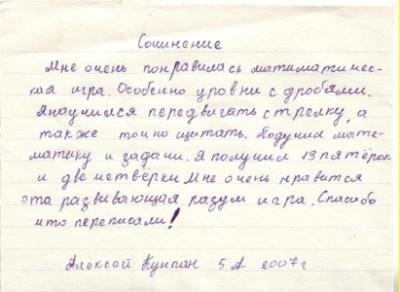 Сочинение
Мне очень понравилась матиматичес-
кая игра. Особенно уровни с дробями.
Янаучился передвигать стрелку, а
также точно щитать. Подучил мате-
матику и задачи. Я получил 13 пятёрок
и две четвёрки Мне очень нравится
эта развивающая разум игра. Спасибо
что переписали!
Алексей 5 А 2007г